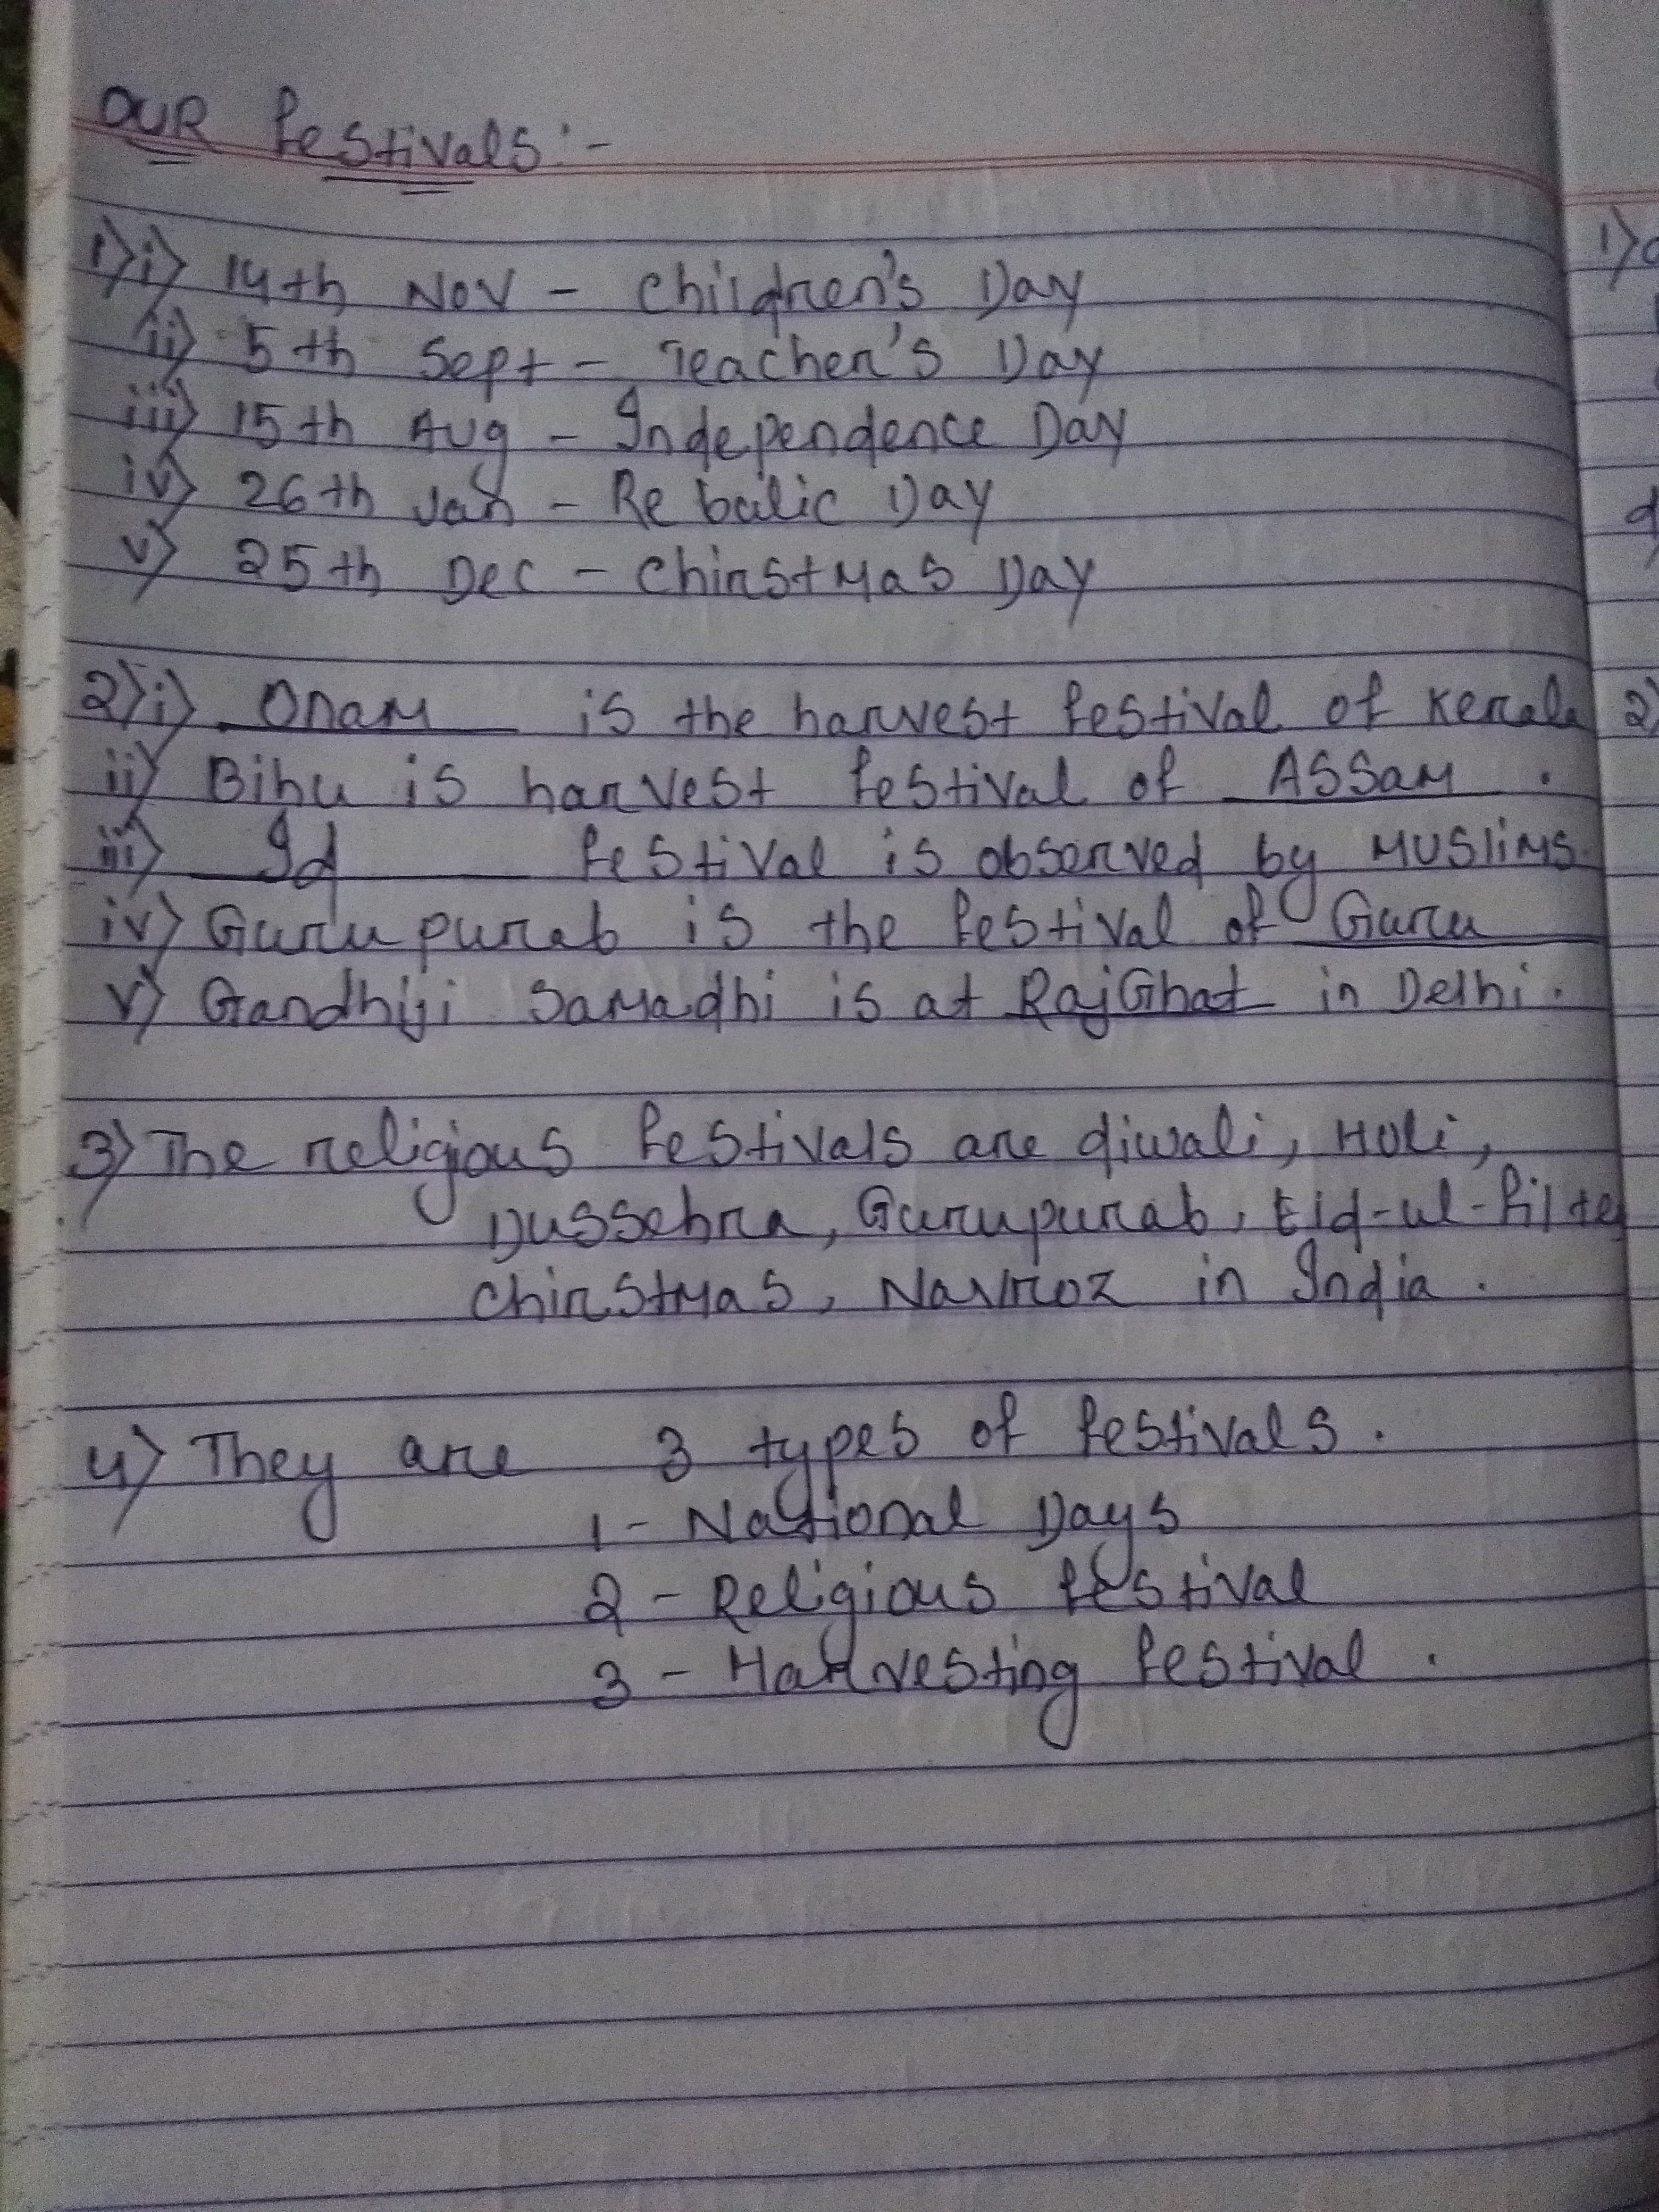 OUR Festivals:-
1) i) 14th Nov - Children's Day
ii) 5th Sept - Teacher's Day
iii) 15th Aug - Independence Day
iv) 26th Jan - Re balic Day
v) 25th Dec - Chirstmas Day
2) i) Onam is the harvest festival of Kerala
ii) Bihu is harvest festival of Assam .
iii) Id festival is observed by Muslims.
iv) Guru purab is the festival of Guru
v) Gandhiji Samadhi is at RajGhat in Delhi.
3) The religious festivals are diwali, Holi,
Dussehra, Gurupurab, Eid-ul-filte
Chirstmas, Navroz in India .
4) They are 3 types of festivals .
1 - National Days
2 - Religious festival
3 - Harvesting festival .
1)
2)